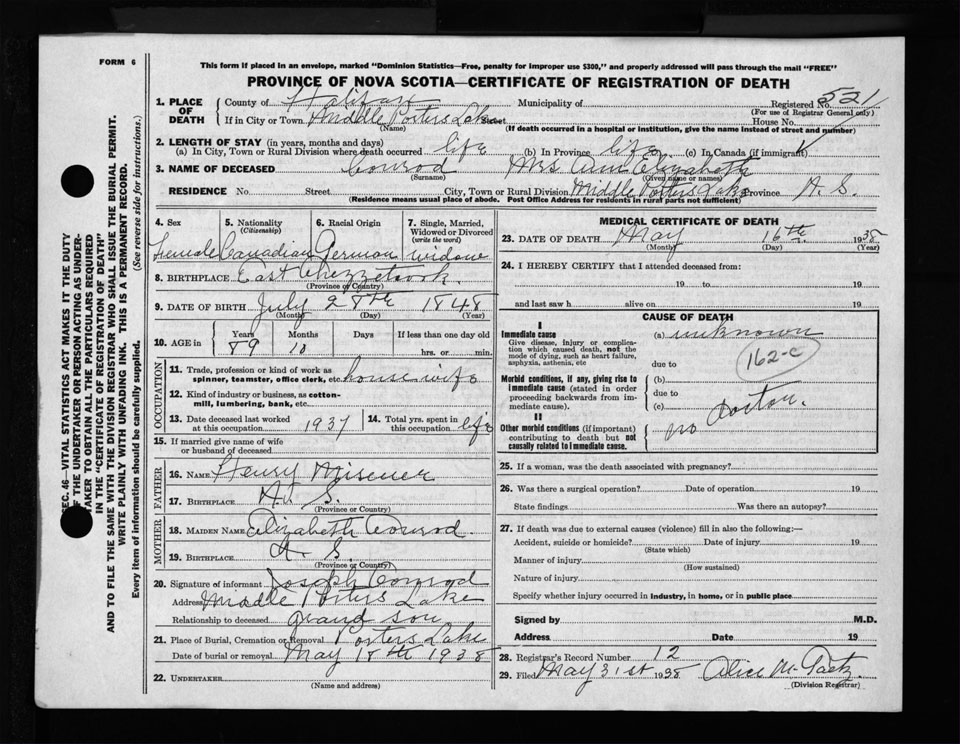 FORM 6
This form if placed in an envelope, marked "Dominion Statistics—Free, penalty for improper use $300," and properly addressed will pass through the mail "FREE"
PROVINCE OF NOVA SCOTIA—CERTIFICATE OF REGISTRATION OF DEATH
SEC. 46—VITAL STATISTICS ACT MAKES IT THE DUTY
OF THE UNDERTAKER OR PERSON ACTING AS UNDER-
TAKER TO OBTAIN ALL THE PARTICULARS REQUIRED
IN THE "CERTIFICATE OF REGISTRATION OF DEATH"
AND TO FILE THE SAME WITH THE DIVISION REGISTRAR WHO SHALL ISSUE THE BURIAL PERMIT.
WRITE PLAINLY WITH UNFADING INK. THIS IS A PERMANENT RECORD.
Every item of information should be carefully supplied. (See reverse side for instructions.)
1. PLACE OF DEATH County of Halifax Municipality of Registered No. 521
(For use of Registrar General only)
If in City or Town Middle Porters Lake Street House No.
(Name) (If death occurred in a hospital or institution, give the name instead of street and number)
2. LENGTH OF STAY (in years, months and days)
(a) In City, Town or Rural Division where death occurred life (b) In Province life (c) In Canada (if immigrant)
3. NAME OF DECEASED Conrod Mrs. Ann Elizabeth
(Surname) (Given name or names)
RESIDENCE No. Street City, Town or Rural Division Middle Porters Lake Province N. S.
(Residence means usual place of abode. Post Office Address for residents in rural parts not sufficient)
4. Sex 5. Nationality (Citizenship) 6. Racial Origin 7. Single, Married, Widowed or Divorced (write the word)
Female Canadian German widow
8. BIRTHPLACE East Chezzetcook
(Province or Country)
9. DATE OF BIRTH July 28th 1848
(Month) (Day) (Year)
10. AGE in Years Months Days If less than one day old
89 10 hrs. or min.
OCCUPATION
11. Trade, profession or kind of work as spinner, teamster, office clerk, etc. housewife
12. Kind of industry or business, as cotton-mill, lumbering, bank, etc.
13. Date deceased last worked at this occupation 1937 14. Total yrs. spent in this occupation life
15. If married give name of wife or husband of deceased
FATHER
16. NAME Henry Misener
17. BIRTHPLACE N. S.
(Province or Country)
MOTHER
18. MAIDEN NAME Elizabeth Conrod
19. BIRTHPLACE N. S.
(Province or Country)
20. Signature of informant Joseph Conrod
Address Middle Porters Lake
Relationship to deceased grand son
21. Place of Burial, Cremation or Removal Porters Lake
Date of burial or removal May 18th 1938
22. UNDERTAKER
(Name and address)
MEDICAL CERTIFICATE OF DEATH
23. DATE OF DEATH May 16th 1938
(Month) (Day) (Year)
24. I HEREBY CERTIFY that I attended deceased from:
19 to 19
and last saw h alive on 19
CAUSE OF DEATH
I
Immediate cause
Give disease, injury or complication which caused death, not the mode of dying, such as heart failure, asphyxia, asthenia, etc
(a) unknown
due to
162-c
Morbid conditions, if any, giving rise to immediate cause (stated in order proceeding backwards from immediate cause).
(b)
due to
(c)
II
Other morbid conditions (if important) contributing to death but not causally related to immediate cause.
no Doctor.
25. If a woman, was the death associated with pregnancy?
26. Was there a surgical operation? Date of operation 19
State findings Was there an autopsy?
27. If death was due to external causes (violence) fill in also the following:—
Accident, suicide or homicide? Date of injury 19
(State which)
Manner of injury
(How sustained)
Nature of injury
Specify whether injury occurred in industry, in home, or in public place
Signed by M.D.
Address Date 19
28. Registrar's Record Number 12
29. Filed May 31st 1938
(Division Registrar)